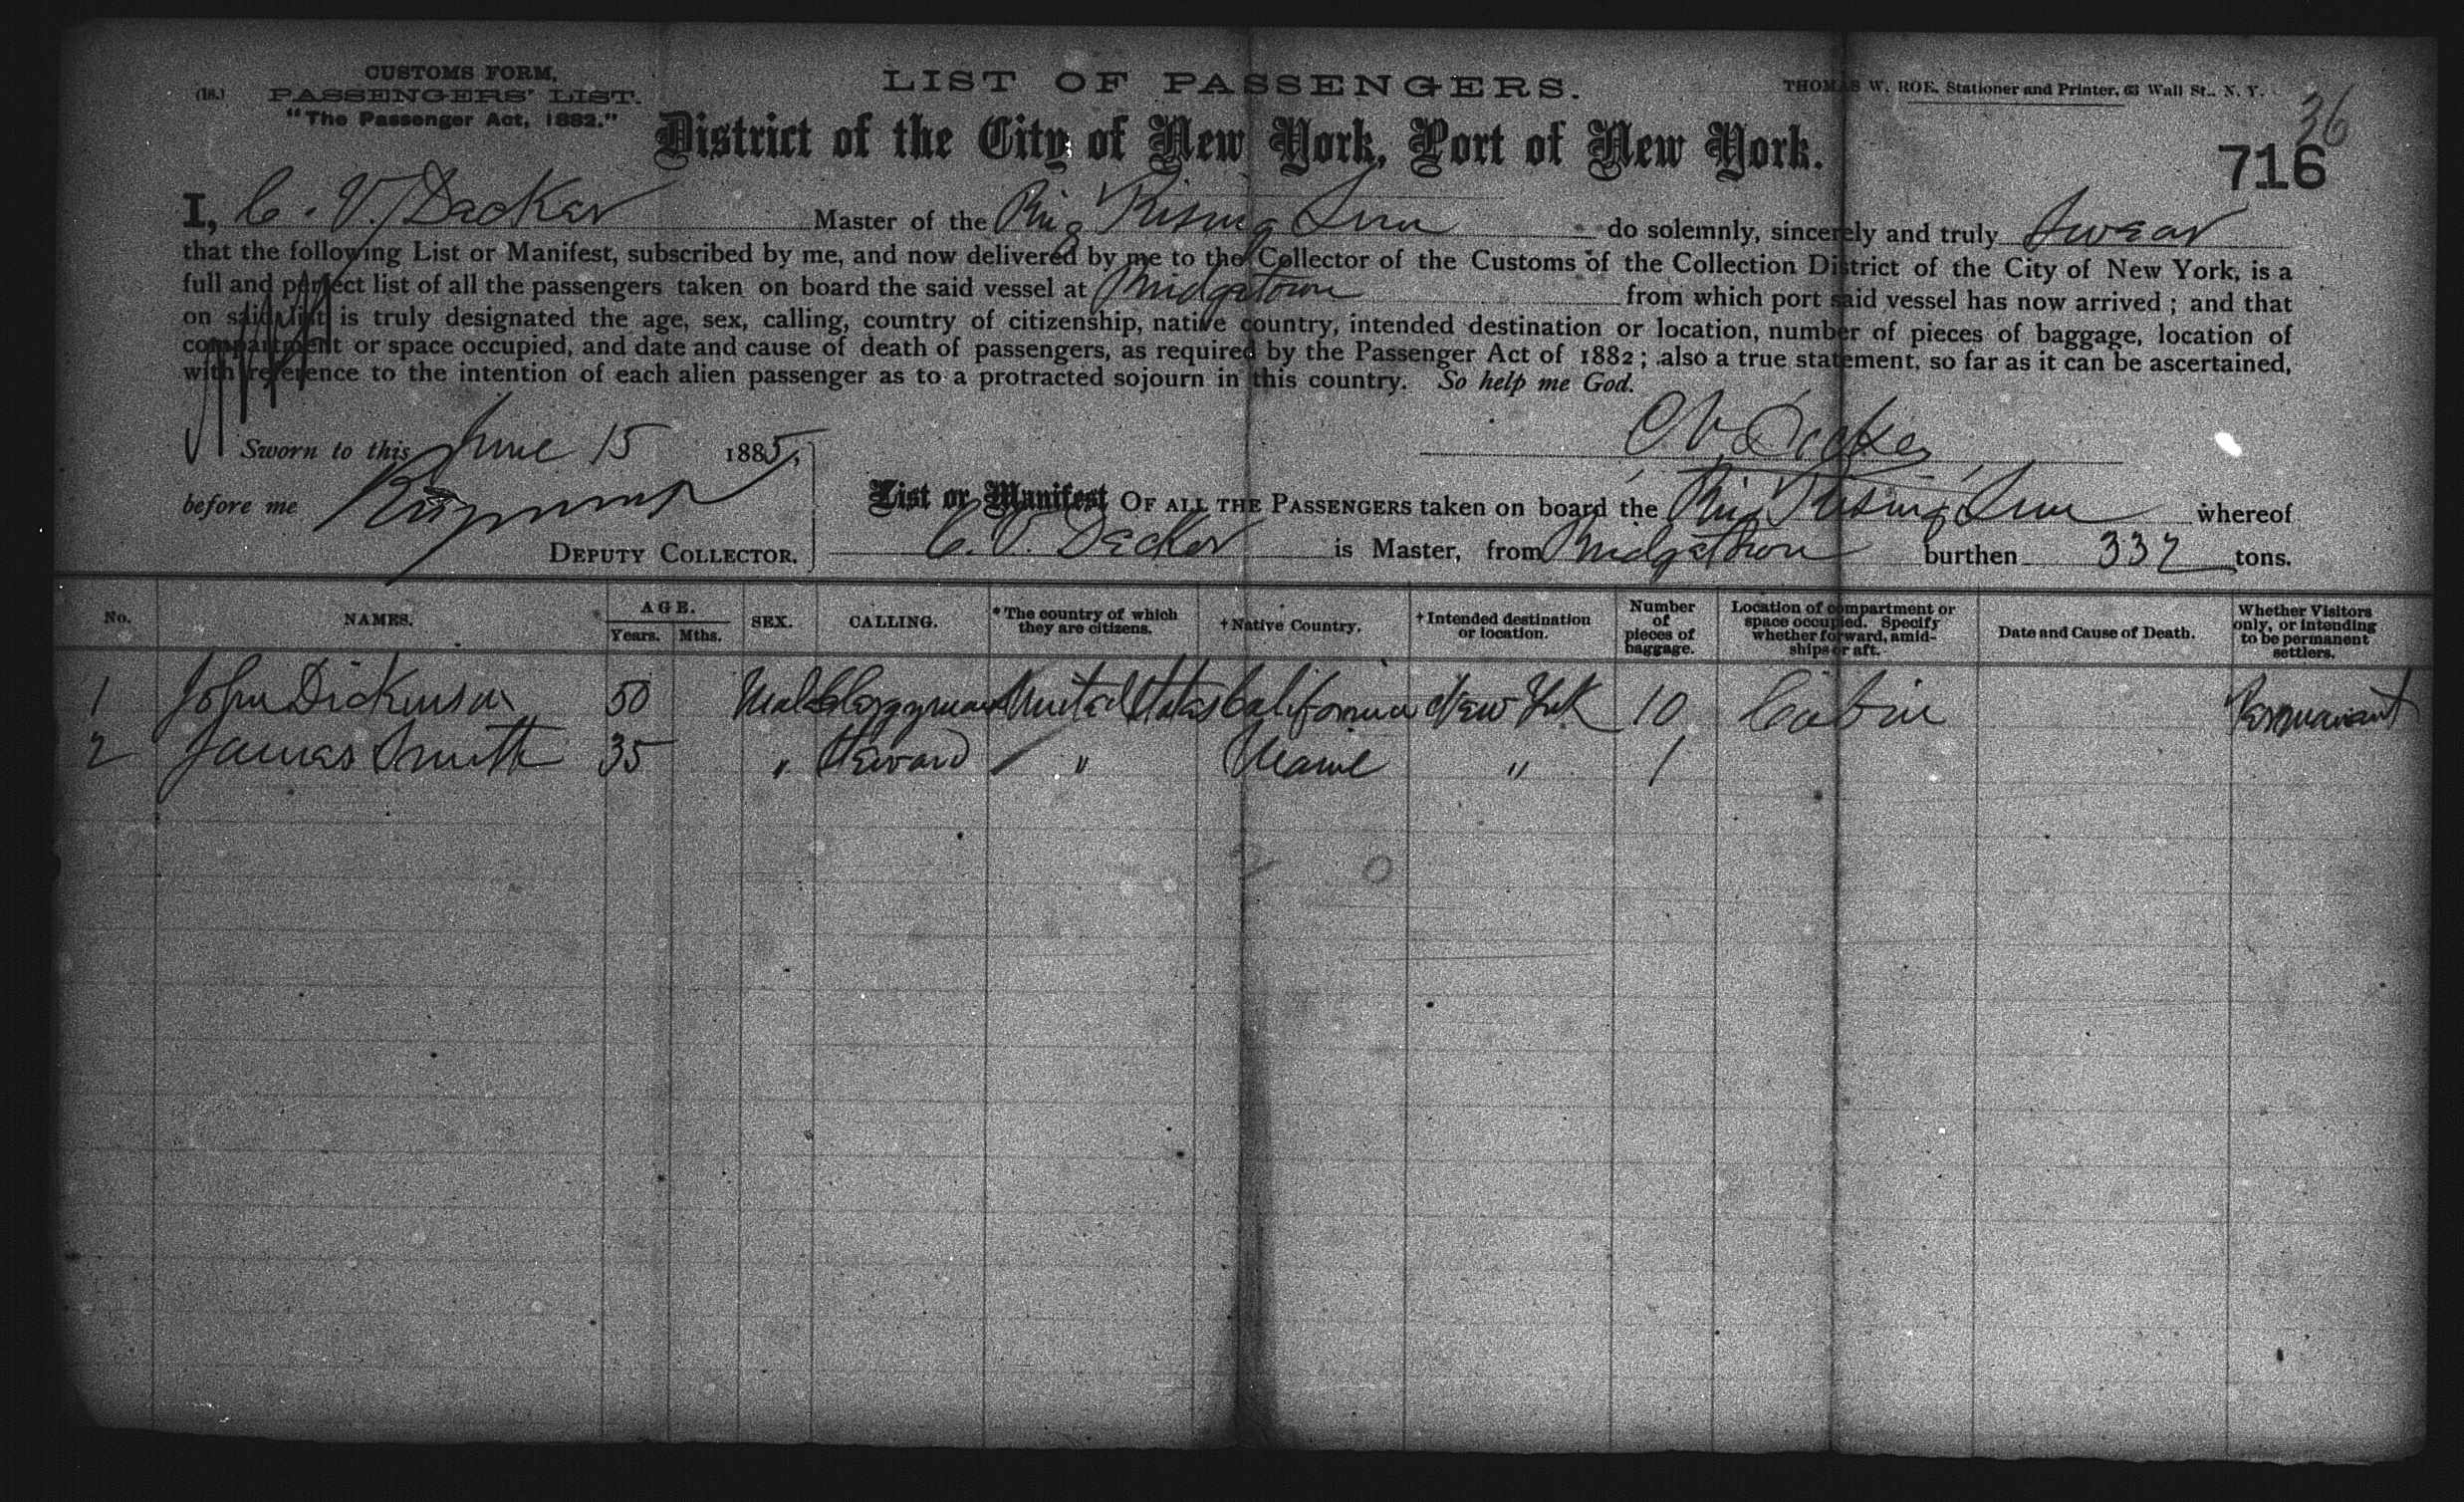 CUSTOMS FORM,
(18.) PASSENGERS' LIST.
"The Passenger Act, 1882."
LIST OF PASSENGERS.
THOMAS W. ROE, Stationer and Printer, 63 Wall St., N. Y.
36
District of the City of New York, Port of New York.
716
I, C. V. Decker Master of the Brig Rising Sun do solemnly, sincerely and truly Swear
that the following List or Manifest, subscribed by me, and now delivered by me to the Collector of the Customs of the Collection District of the City of New York, is a
full and perfect list of all the passengers taken on board the said vessel at Bridgetown from which port said vessel has now arrived; and that
on said list is truly designated the age, sex, calling, country of citizenship, native country, intended destination or location, number of pieces of baggage, location of
compartment or space occupied, and date and cause of death of passengers, as required by the Passenger Act of 1882; also a true statement, so far as it can be ascertained,
with reference to the intention of each alien passenger as to a protracted sojourn in this country. So help me God.
Sworn to this June 15 1885,
C V Decker
before me
DEPUTY COLLECTOR.
List or Manifest OF ALL THE PASSENGERS taken on board the Brig Rising Sun whereof
C. V. Decker is Master, from Bridgetown burthen 337 tons.
No. NAMES. AGE. Years. Mths. SEX. CALLING. *The country of which they are citizens. †Native Country. †Intended destination or location. Number of pieces of baggage. Location of compartment or space occupied. Specify whether forward, amidships or aft. Date and Cause of Death. Whether Visitors only, or intending to be permanent settlers.
1 John Dickinson 50 Male Clergyman United States California New York 10 Cabin Permanant
2 James Smith 35 " Steward " Maine " 1
2 0